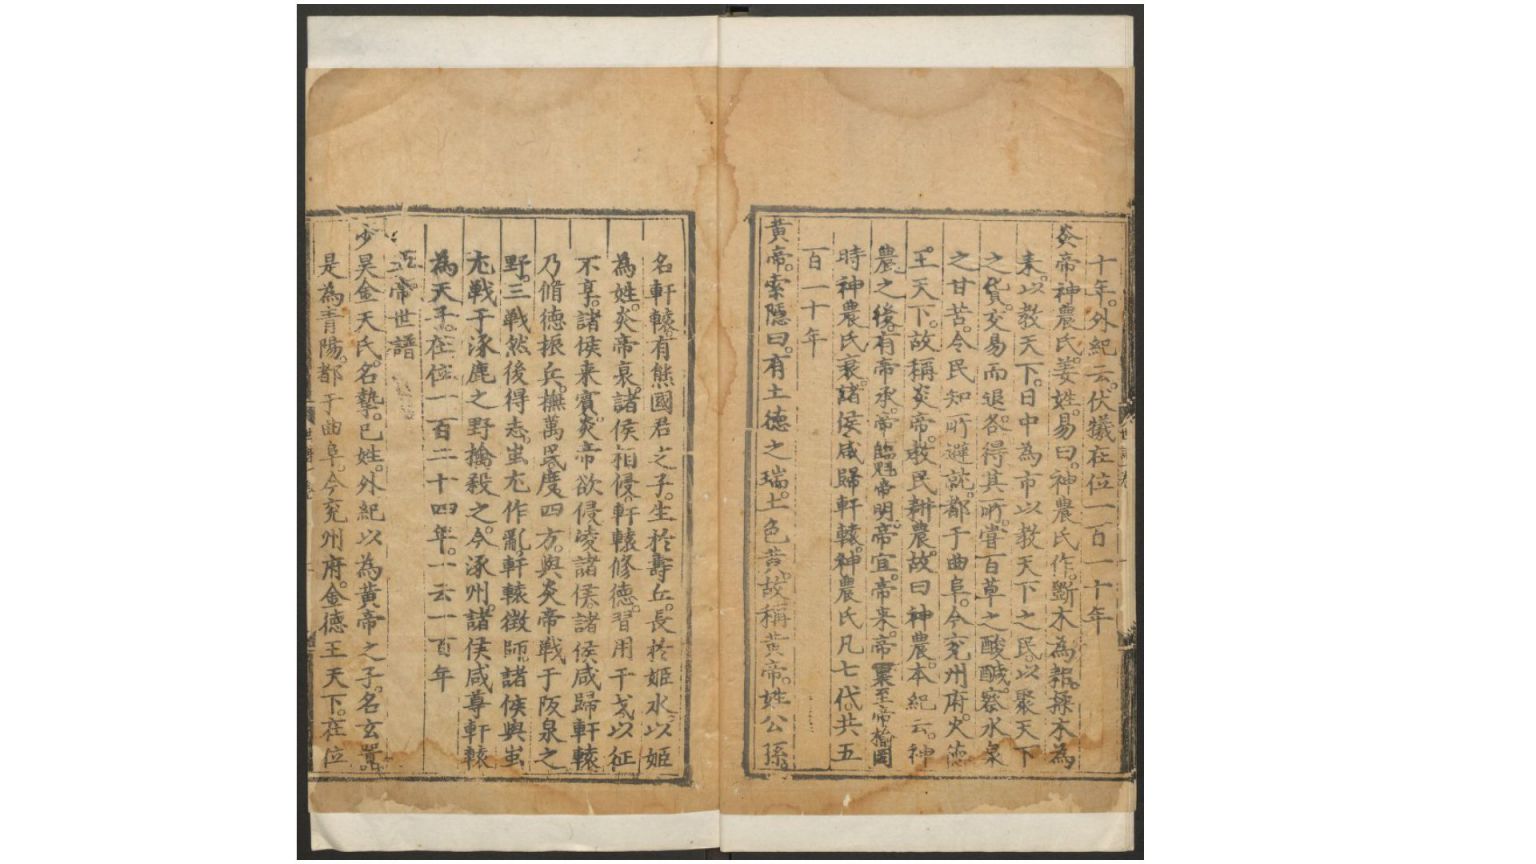 十年。外紀云。伏犧在位一百一十年
炎帝神農氏。姜姓。易曰。神農氏作。斲木為耜。揉木為
耒。以教天下。日中為市以致天下之民。以聚天下
之貨。交易而退。各得其所。嘗百草之酸醎。察水泉
之甘苦。令民知所避就。都于曲阜。今兖州府。火德
王天下。故稱炎帝。教民耕農。故曰神農。本紀云。神
農之後。有帝承。帝臨魁。帝明。帝宜。帝来。帝裏至帝榆罔
時神農氏衰。諸侯咸歸軒轅。神農氏凡七代。共五
百一十年
黃帝。索隱曰。有土德之瑞。土色黃。故稱黃帝。姓公孫。
名軒轅。有熊國君之子。生於壽丘。長於姬水以姬
為姓。炎帝衰。諸侯相侵。軒轅修德。習用干戈以征
不享。諸侯来賓。炎帝欲侵凌諸侯。諸侯咸歸軒轅
乃脩德振兵。撫萬民。度四方。與炎帝戰于阪泉之
野。三戰然後得志。蚩尤作亂。軒轅徵師。諸侯與蚩
尤戰于涿鹿之野擒殺之。今涿州。諸侯咸尊軒轅
為天子。在位一百二十四年。一云一百年
五帝世譜
少昊金天氏。名摯。己姓。外紀以為黃帝之子。名玄囂。
是為青陽。都于曲阜。今兖州府。金德王天下。在位